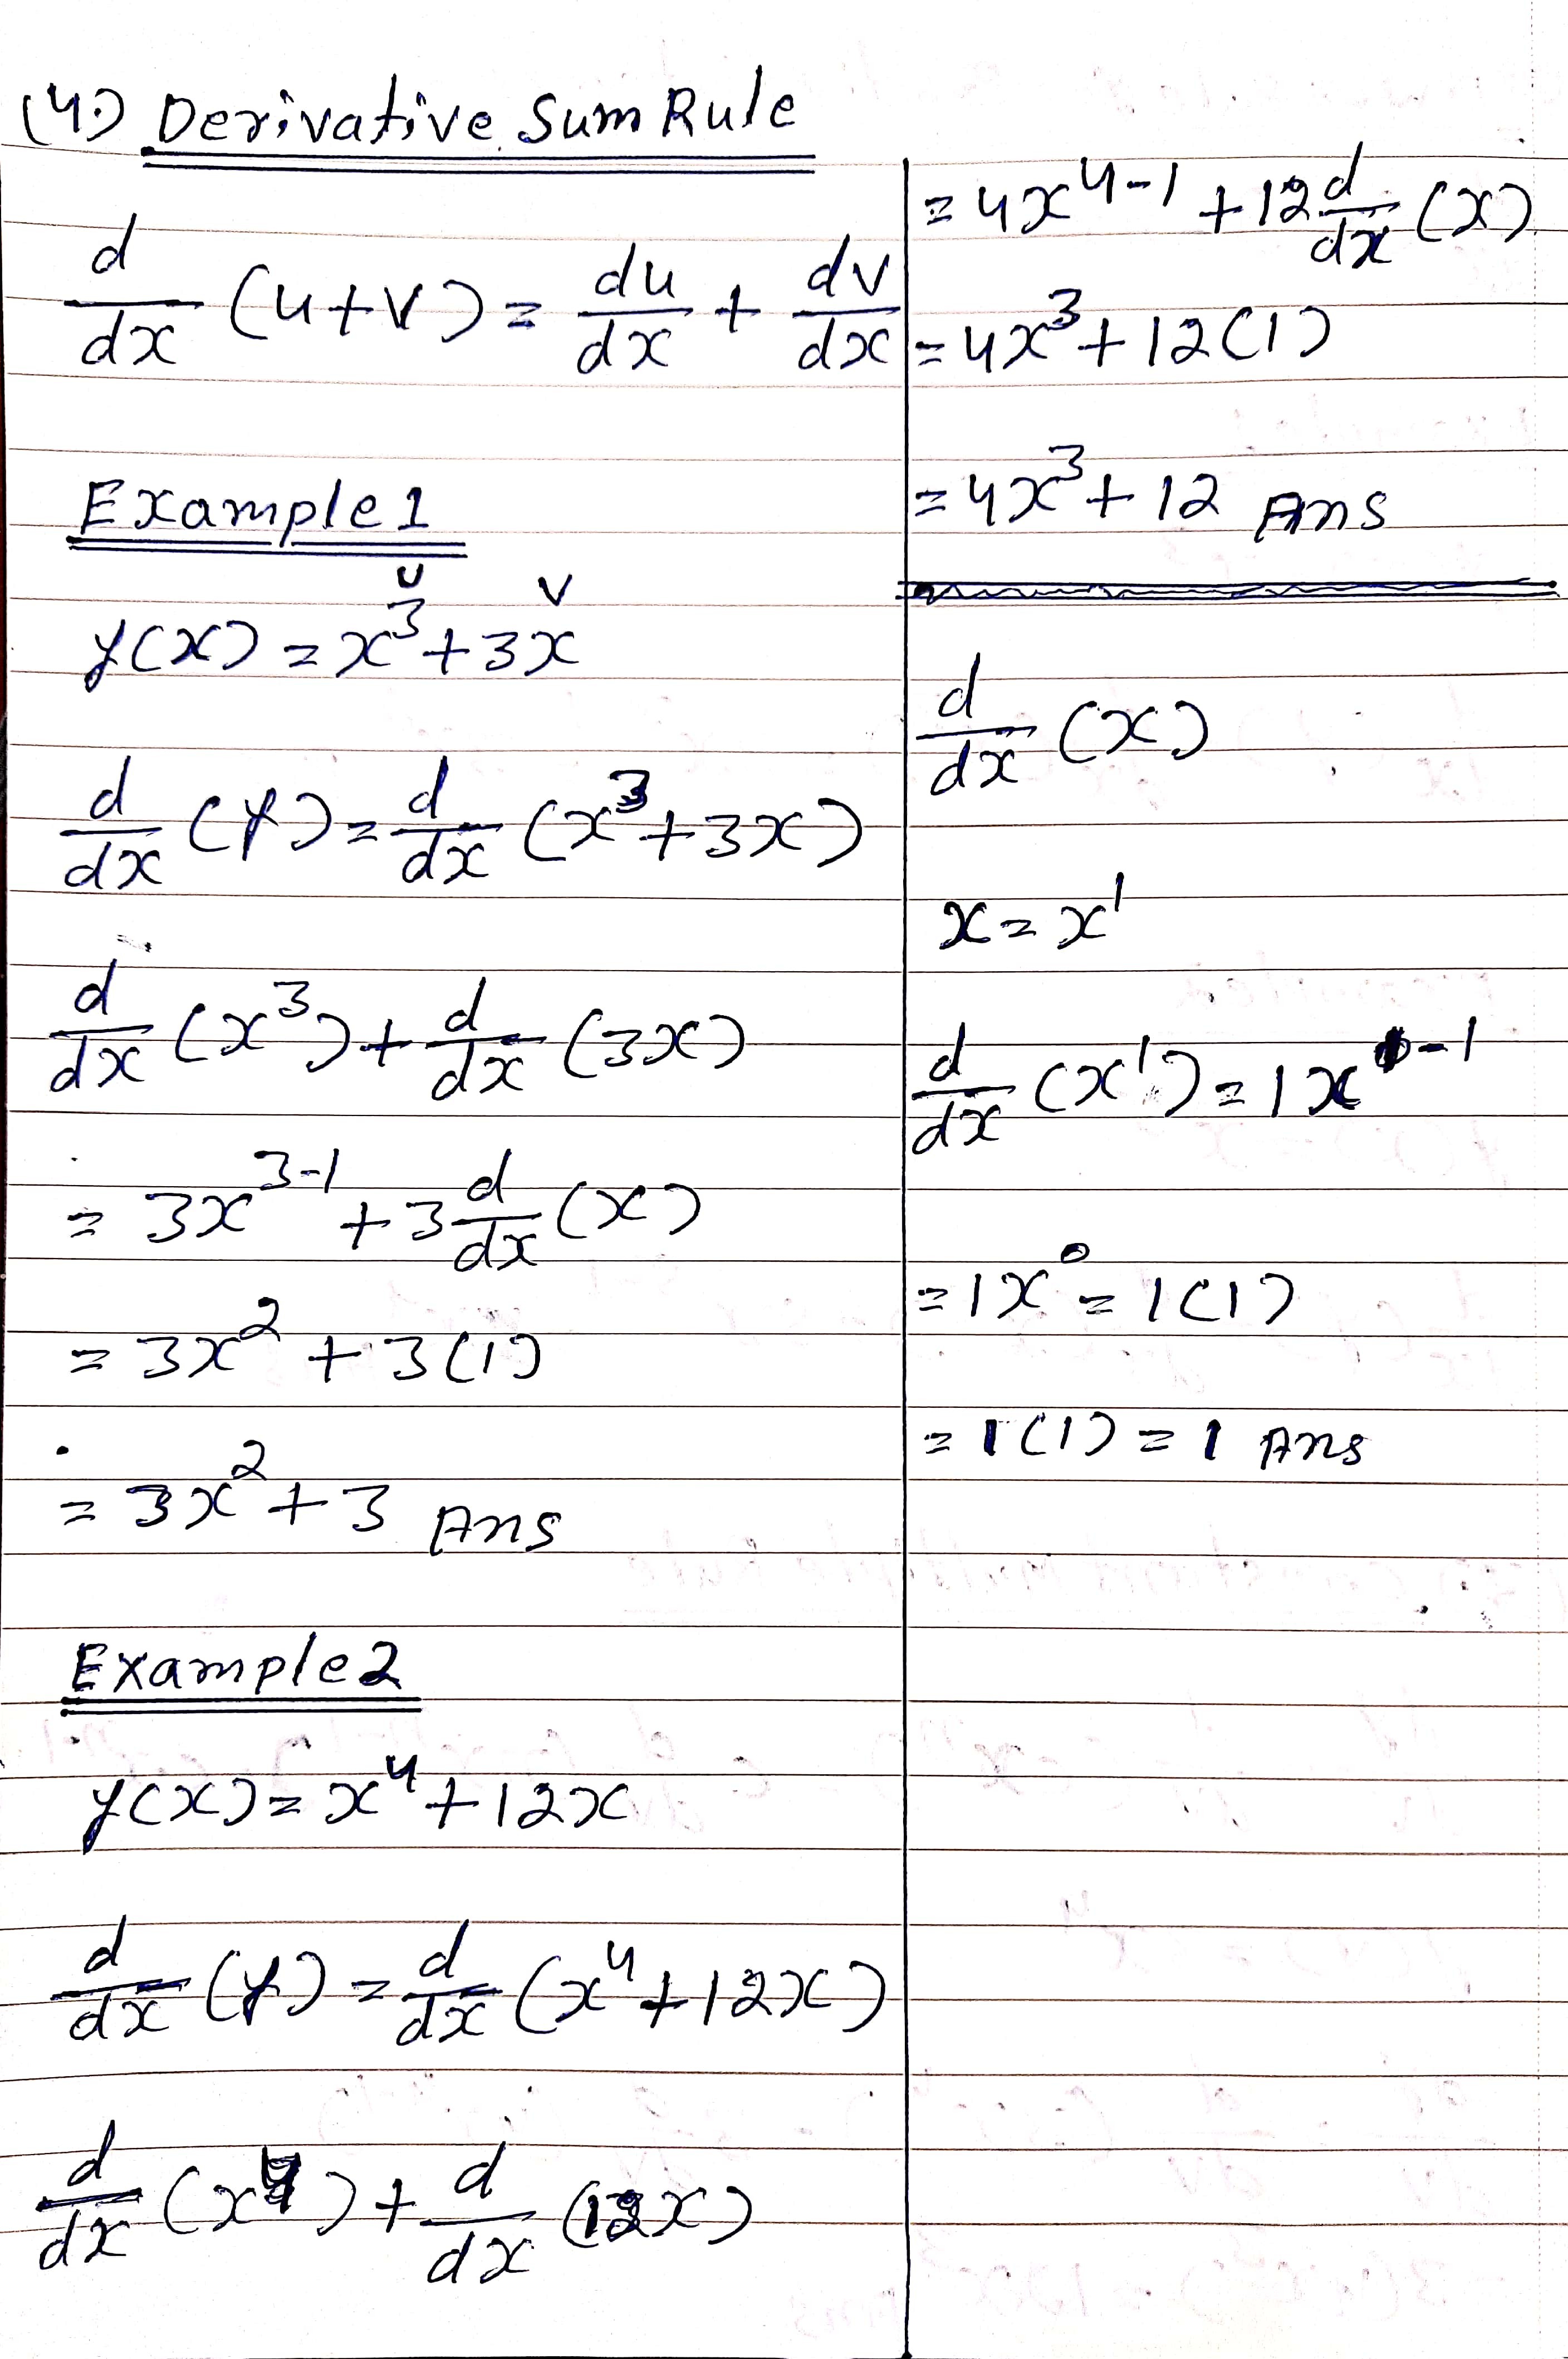 (4.) Derivative Sum Rule
d/dx (u+v) = du/dx + dv/dx
Example 1
u v
y(x) = x³+3x
d/dx (y) = d/dx (x³+3x)
d/dx (x³) + d/dx (3x)
= 3x³⁻¹ + 3 d/dx (x)
= 3x² + 3(1)
= 3x² + 3 Ans
Example 2
y(x) = x⁴+12x
d/dx (y) = d/dx (x⁴+12x)
d/dx (x⁴) + d/dx (12x)
= 4x⁴⁻¹ + 12 d/dx (x)
= 4x³ + 12(1)
= 4x³ + 12 Ans
d/dx (x)
x = x¹
d/dx (x¹) = 1x¹⁻¹
= 1x⁰ = 1(1)
= 1(1) = 1 Ans